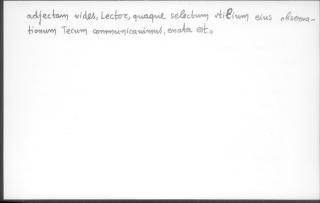 adjectam vides, Lector, quaque selectum vtilium eius observa-
tionum Tecum communicavimus, enata est.